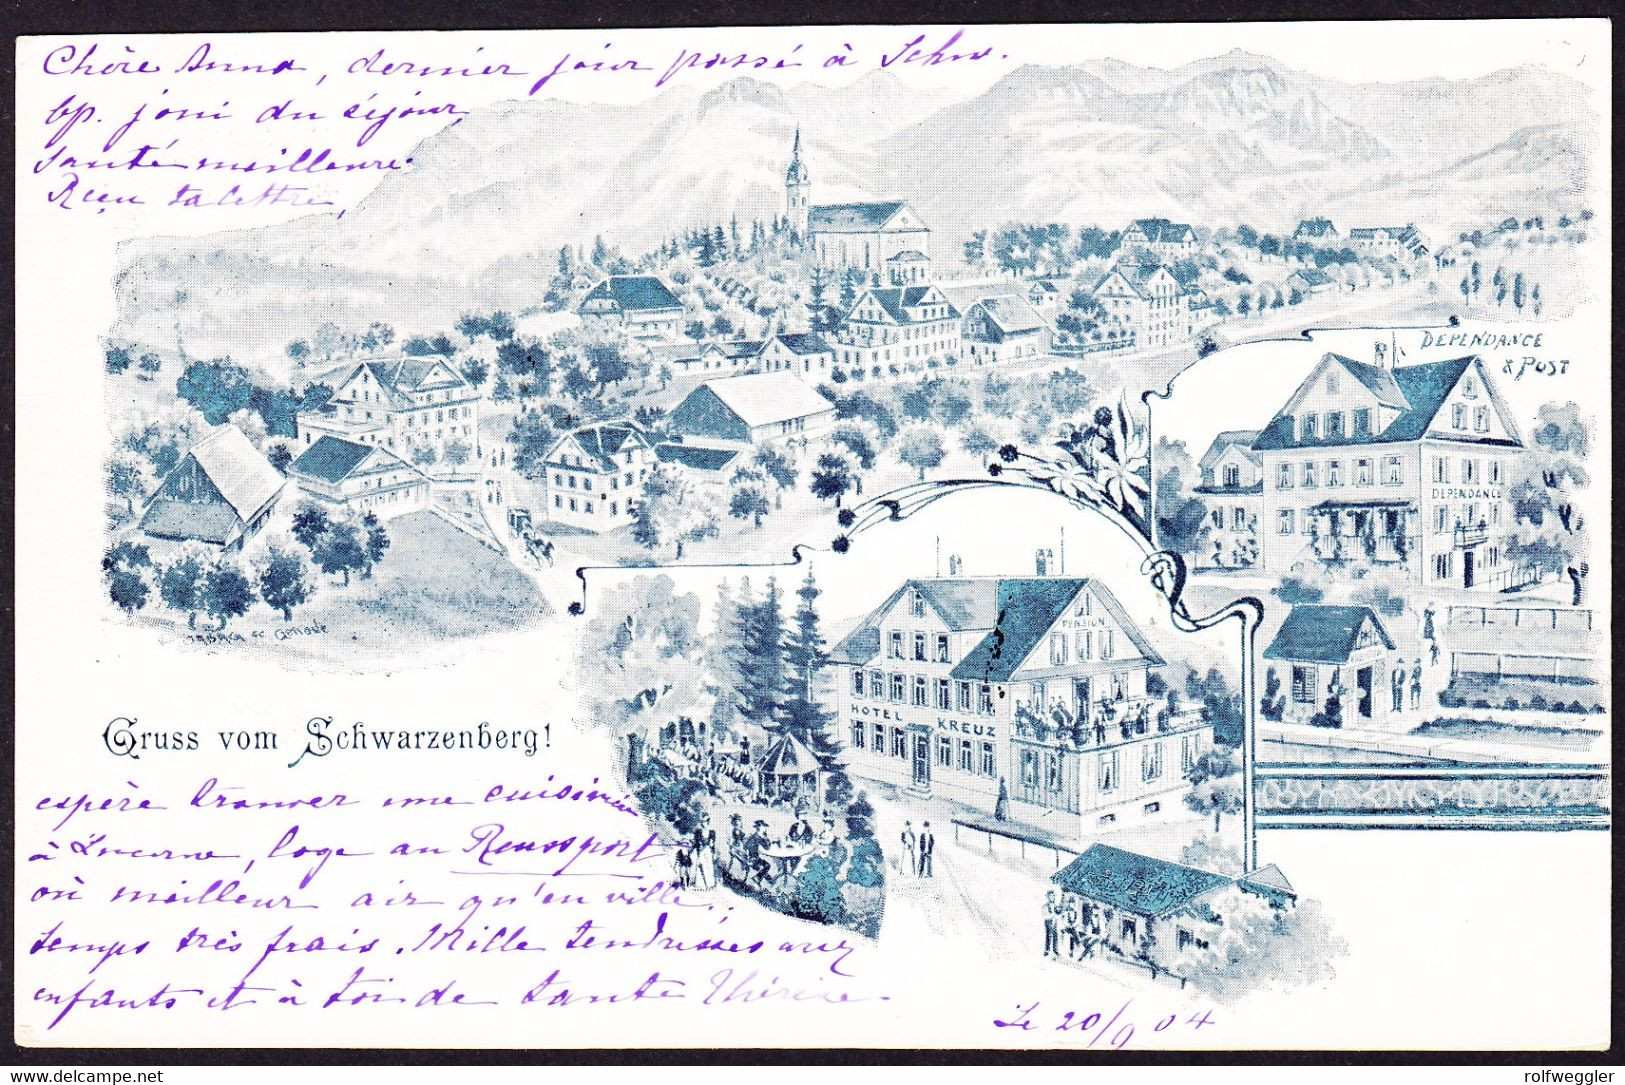 Chère Anna, dernier jour passé à Schw.
bp. joui du séjour,
santé meilleure.
Reçu ta lettre,
DEPENDANCE
& POST
DEPENDANCE
PENSION
HOTEL KREUZ
Gruss vom Schwarzenberg!
espère trouver une cuisinière
à Lucerne, loge au Reussport
où meilleur air qu'en ville.
temps très frais. Mille tendresses aux
enfants et à toi de tante Thérèse
Le 20/9 04
delcampe.net
rolfweggler